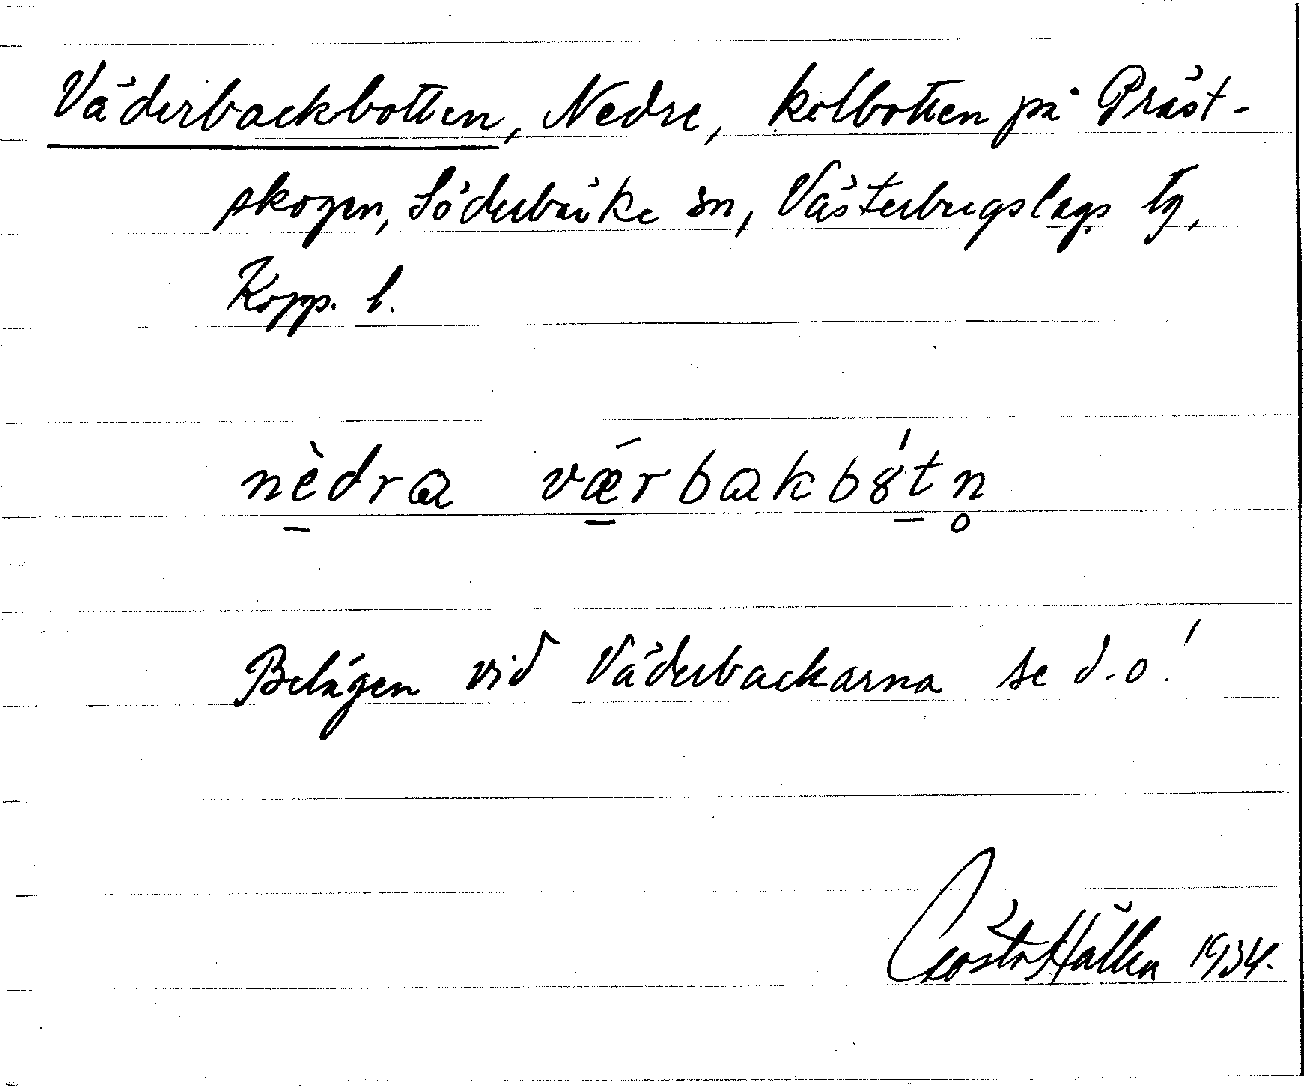 Väderbackbotten, Nedre, kolbotten på Präst-
skogen, Söderbärke sn, Västerbergslags tg,
Kopp. l.
nèdra vǽrbakb8́tn̥
Belägen vid Väderbackarna se d.o!
Gösta Hällen 1934.